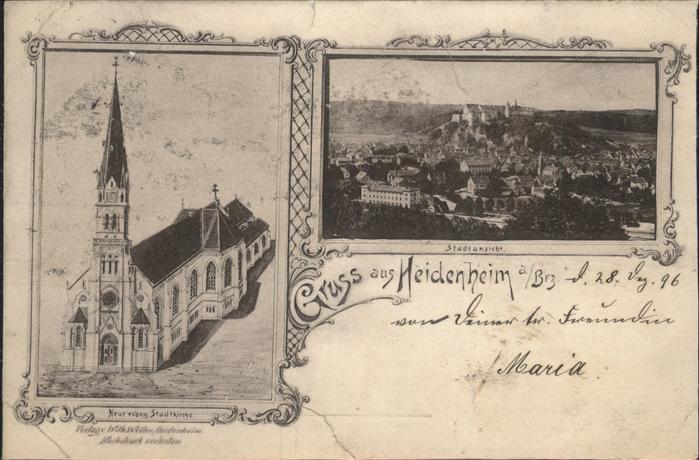 Stadtansicht.
Gruss aus Heidenheim a/Brz. d. 28. Dez. 96
von Deiner tr. Freundin
Maria.
Neue evang. Stadtkirche
Verlag v. Wilh. Weller, Heidenheim
Nachdruck verboten